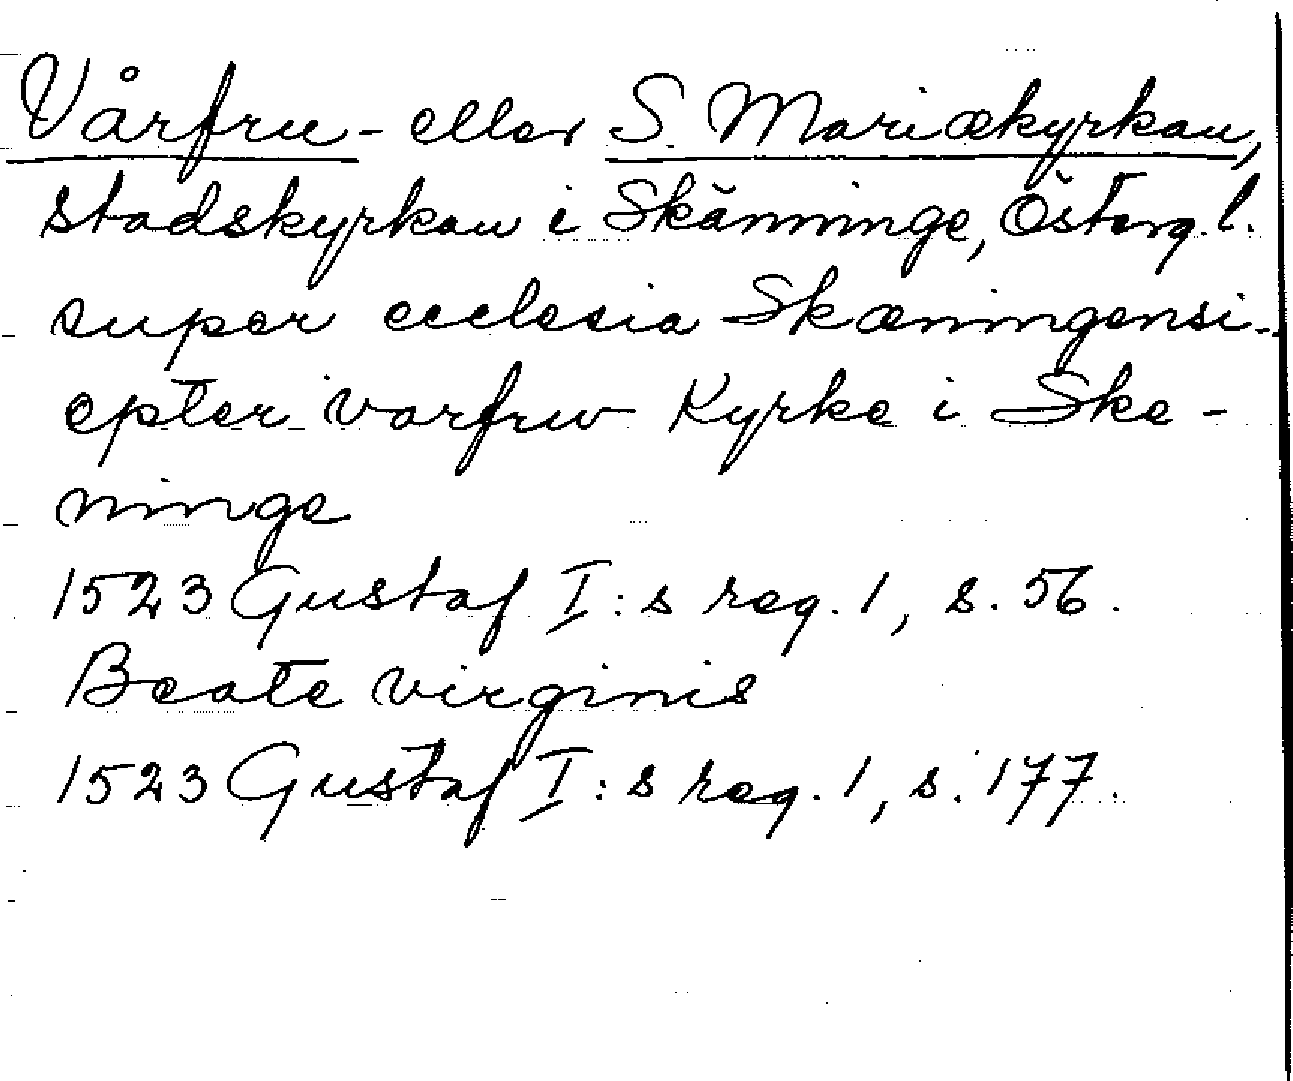 Vårfru- eller S. Mariækyrkan,
stadskyrkan i Skänninge, Österg. l.
super ecclesia Skæningensi.
epter varfrw Kyrke i Ske-
ninge
1523 Gustaf I:s reg. 1, s. 56.
Beate virginis
1523 Gustaf I:s reg. 1, s. 177.